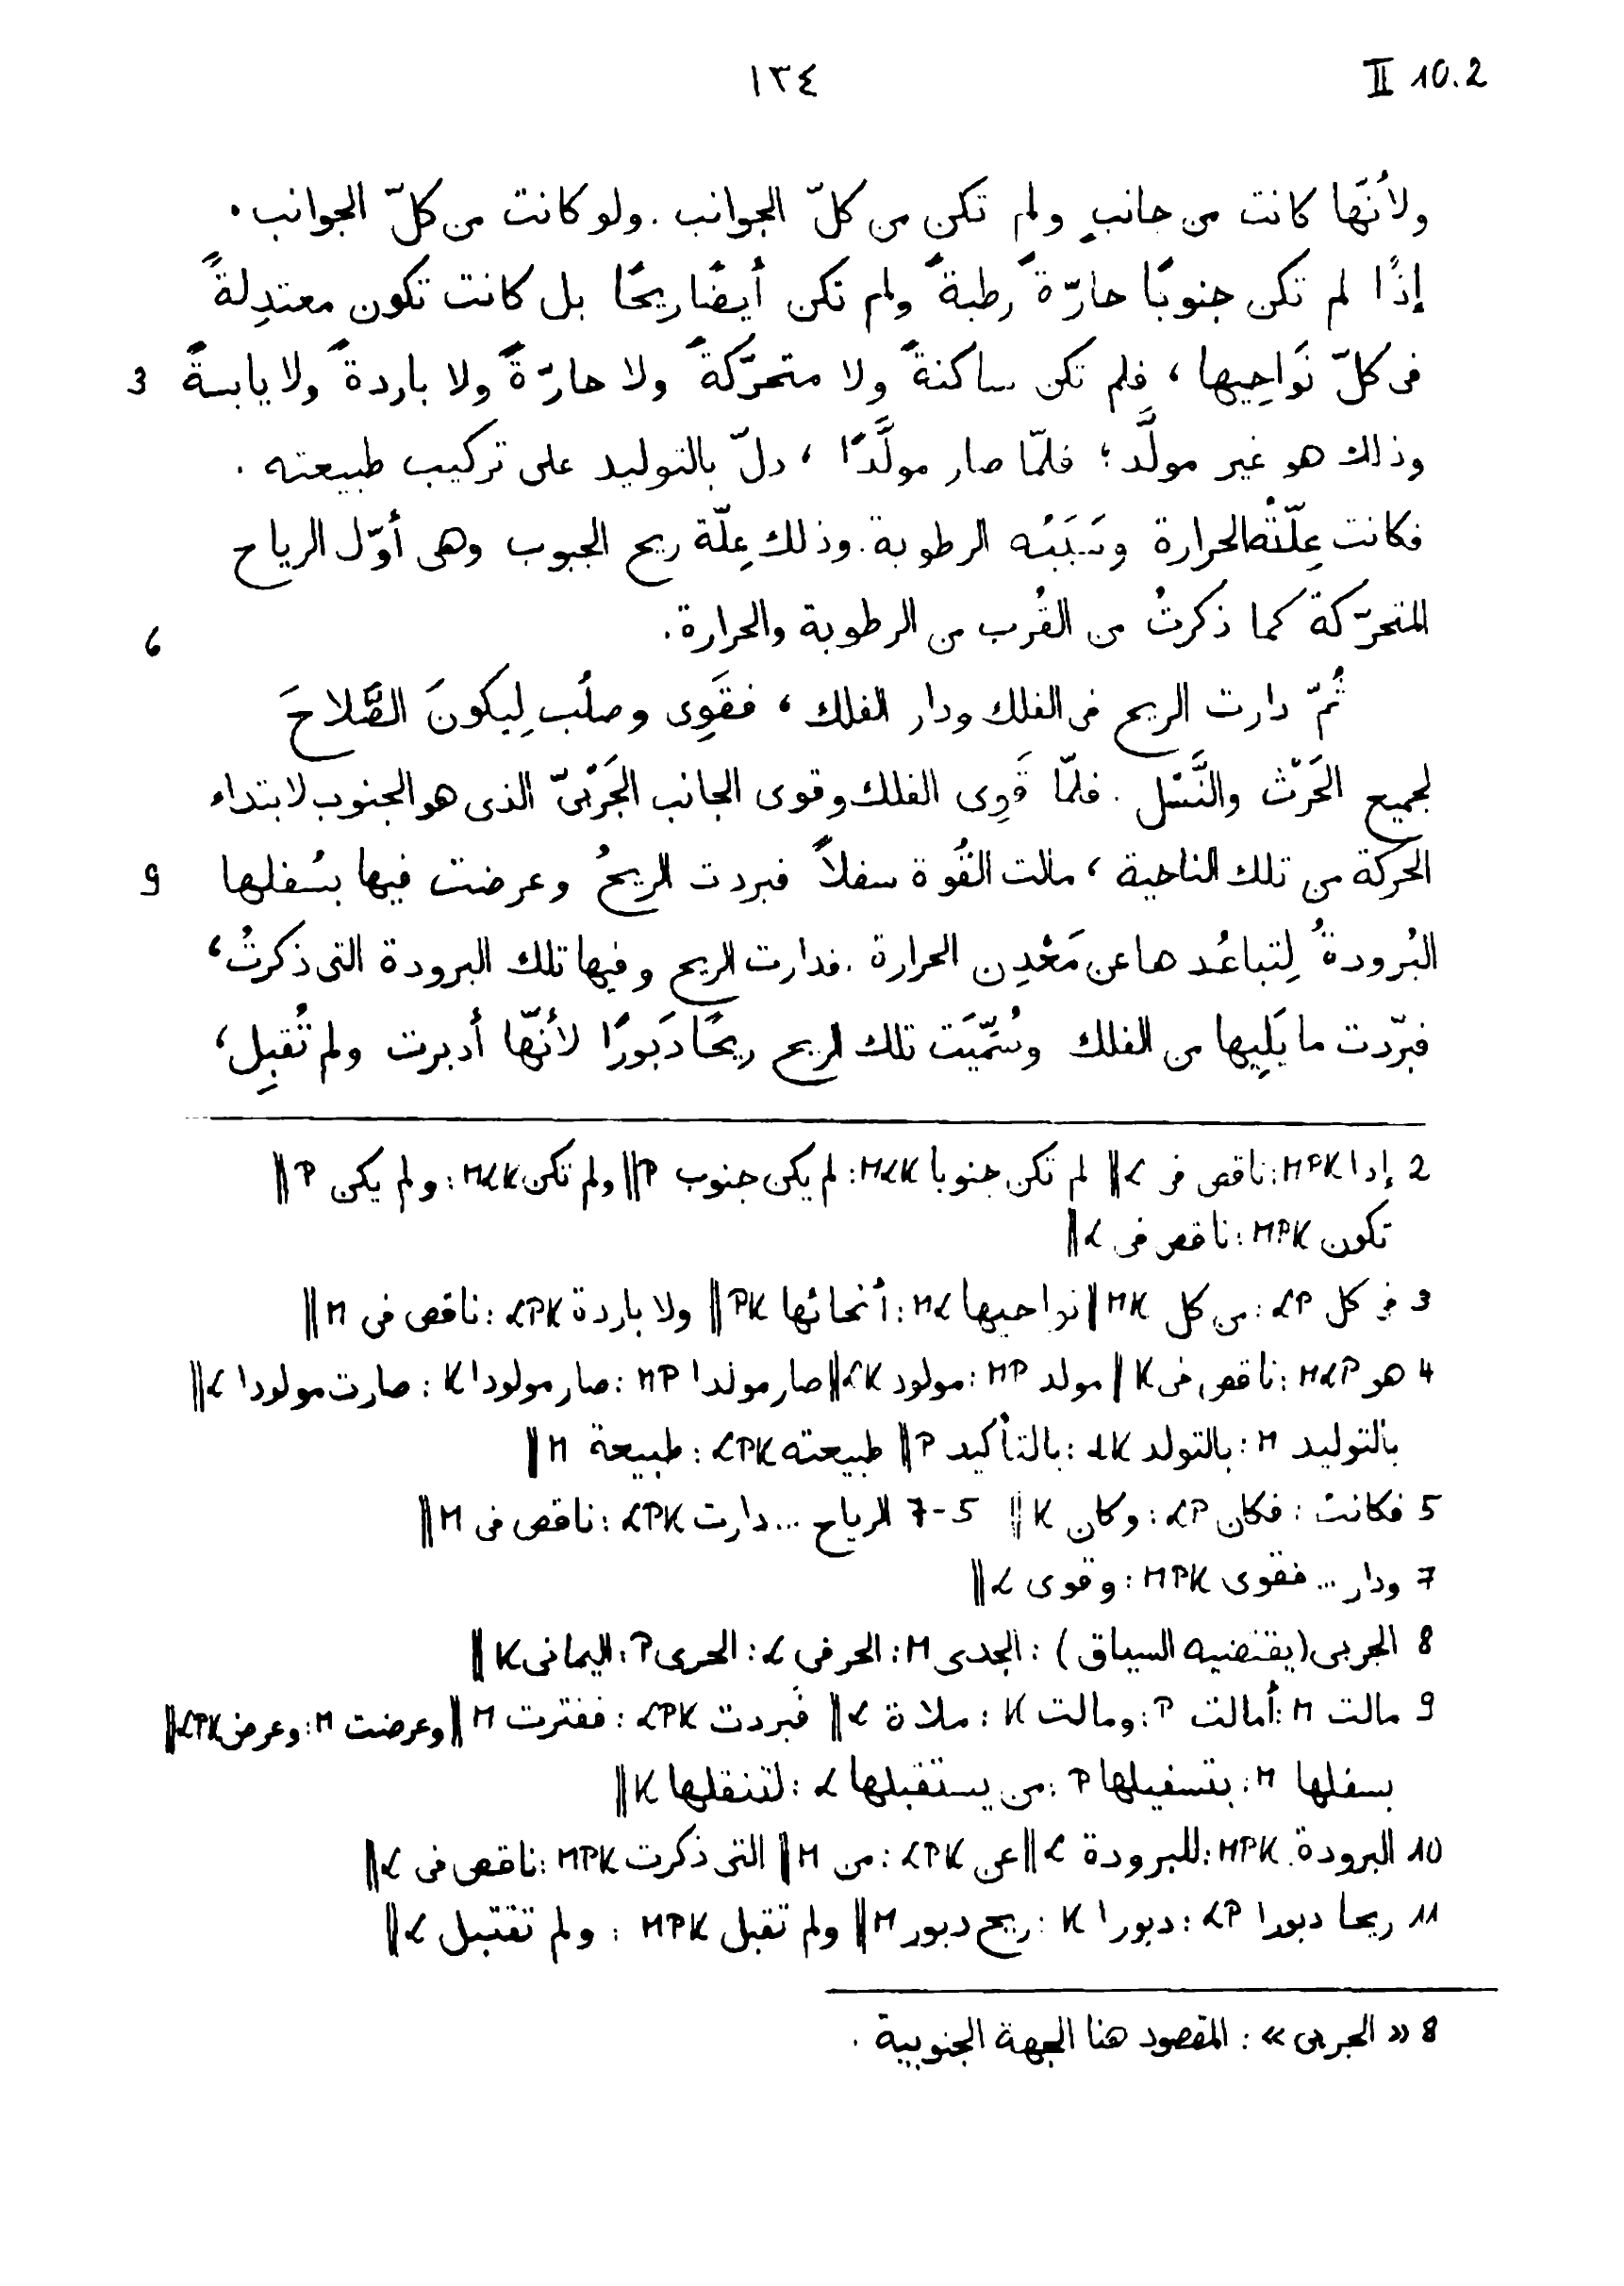 II 10.2
١٣٤
ولأنّها كانت من جانبٍ ولم تكن من كلّ الجوانب. ولو كانت من كلّ الجوانب.
إذًا لم تكن جنوبًا حارّةً رطبةً ولم تكن أيضًا ريحًا بل كانت تكون معتدِلةً
فى كلّ نَواحِيها، فلم تكن ساكنةً ولا متحرّكةً ولا حارّةً ولا باردةً ولا يابسةً 3
وذلك هو غير مولَّد؛ فلمّا صار مولَّدًا، دلّ بالتوليد على تركيب طبيعته.
فكانت عِلّتُه الحرارة وسَبَبُه الرطوبة. وذلك عِلّة ريح الجبوب وهى أوّل الرياح
المتحرّكة كما ذكرتُ من القُرب من الرطوبة والحرارة. 6
ثُمّ دارت الريح فى الفلك ودار الفلك، فقَوِى وصلُب لِيكونَ الصَّلاحَ
لجميع الحَرْث والنَّسْل. فلمّا قَوِى الفلك وقوى الجانب الجَرْبىّ الذى هو الجنوب لابتداء
الحركة من تلك الناحية، مالت القُوة سفلاً فبردت الريحُ وعرضت فيها بسُفلها 9
البُرودةُ لِتباعُدها عن مَعْدِن الحرارة. فدارت الريح وفيها تلك البرودة التى ذكرتُ،
فبرّدت ما يَلِيها من الفلك وسُمِّيَت تلك الريح ريحًا دَبورًا لأنّها أدبرت ولم تُقبِل،
2 إذا MPK: ناقص فى L || لم تكن جنوبا MLK: لم يكن جنوب P || ولم تكن MLK: ولم يكن P ||
تكون MPK: ناقص فى L ||
3 فى كل LP: من كل MK || نواحيها ML: أنحائها PK || ولا باردة LPK: ناقص فى M ||
4 هو MLP: ناقص فى K || مولد MP: مولود LK || صار مولدا MP: صار مولودا K: صارت مولودا L ||
بالتوليد M: بالتولد LK: بالتأكيد P || طبيعته LPK: طبيعة M ||
5 فكانت: فكان LP: وكان K || 5-7 الرياح ... دارت LPK: ناقص فى M ||
7 ودار ... فقوى MPK: وقوى L ||
8 الجربى (يقتضيه السياق): الجدى M: الحرفى L: الحرى P: اليمانى K ||
9 مالت M: أمالت P: ومالت K: ملاة L || فبردت LPK: ففترت M || وعرضت M: وعرض LPK ||
بسفلها M: بتسفيلها P: من يستقبلها L: لتنقلها K ||
10 البرودة MPK: للبرودة L || عن LPK: من M || التى ذكرت MPK: ناقص فى L ||
11 ريحا دبورا LP: دبورا K: ريح دبور M || ولم تقبل MPK: ولم تقتبل L ||
8 «الجربى»: المقصود هنا الجهة الجنوبية.